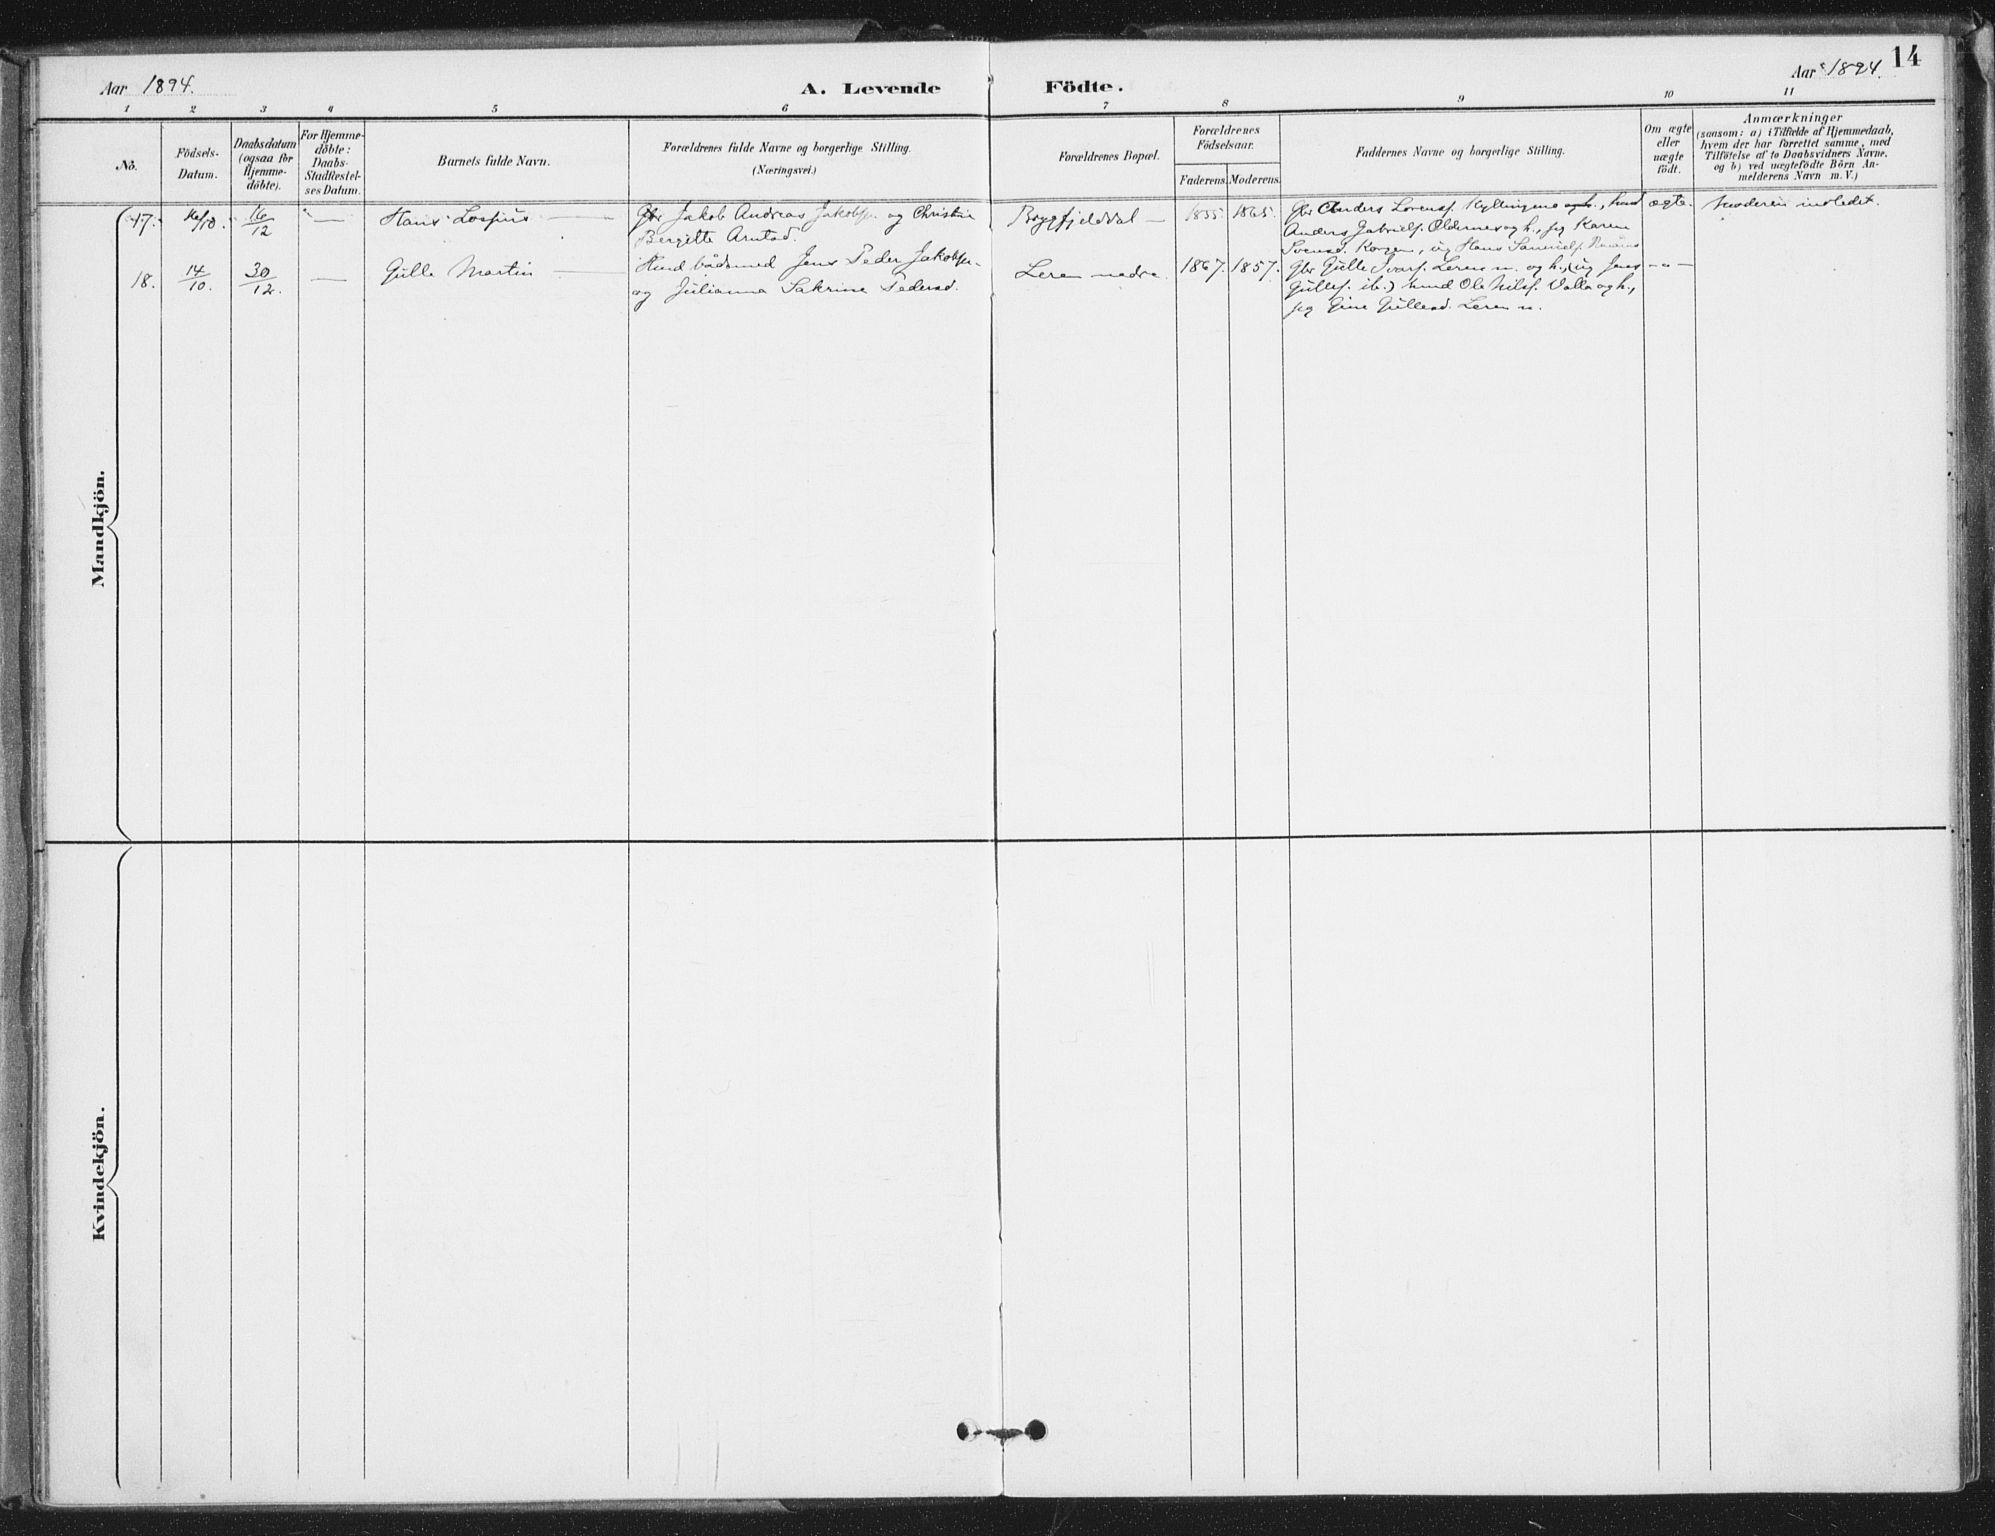 14
Aar 1894.
A. Levende Födte.
Aar 1894.
1 2 3 4 5 6 7 8 9 10 11
No.
Födsels-
Datum.
Daabsdatum
(ogsaa for
Hjemme-
döbte).
For Hjemme-
döbte:
Daabs-
Stadfæstel-
ses Datum.
Barnets fulde Navn.
Forældrenes fulde Navne og borgerlige Stilling.
(Næringsvei.)
Forældrenes Bopæl.
Forældrenes
Födselsaar.
Faderens. Moderens.
Faddernes Navne og borgerlige Stilling.
Om ægte
eller
uægte
födt.
Anmærkninger
(saasom: a) i Tilfælde af Hjemmedaab,
hvem der har forrettet samme, med
Tilföielse af to Daabsvidners Navne,
og b) ved uægtefödte Börn An-
melderens Navn m. V.)
Mandkjön.
17. 16/10. 16/12 — Hans — Gbr Jakob Andreas Jakobs. og Christine
Bergitte Arntsd.
Bryggfjelddal — 1855. 1865.
Gbr Anders Lorensf. Kyllingmo og h., hmd
Anders Gabrielsf. Oldernes og h., pg Karen
Svensd. Korgen, ug Hans
ægte. Moderen indledet.
18. 14/10. 30/12. — Gulle Martin — Hmd bådsmed Jens Peder Jakobs.
og Julianna Sakrine Pedersd.
Leren nedre. 1867. 1857.
Gbr Gulle Ivarsf. Leren n. og h., (ug Jens
Gullesf. ib.) hmd Ole Nilsf. Valla og h.,
pg Gine Gullesd. Leren n.
— " —
Kvindekjön.